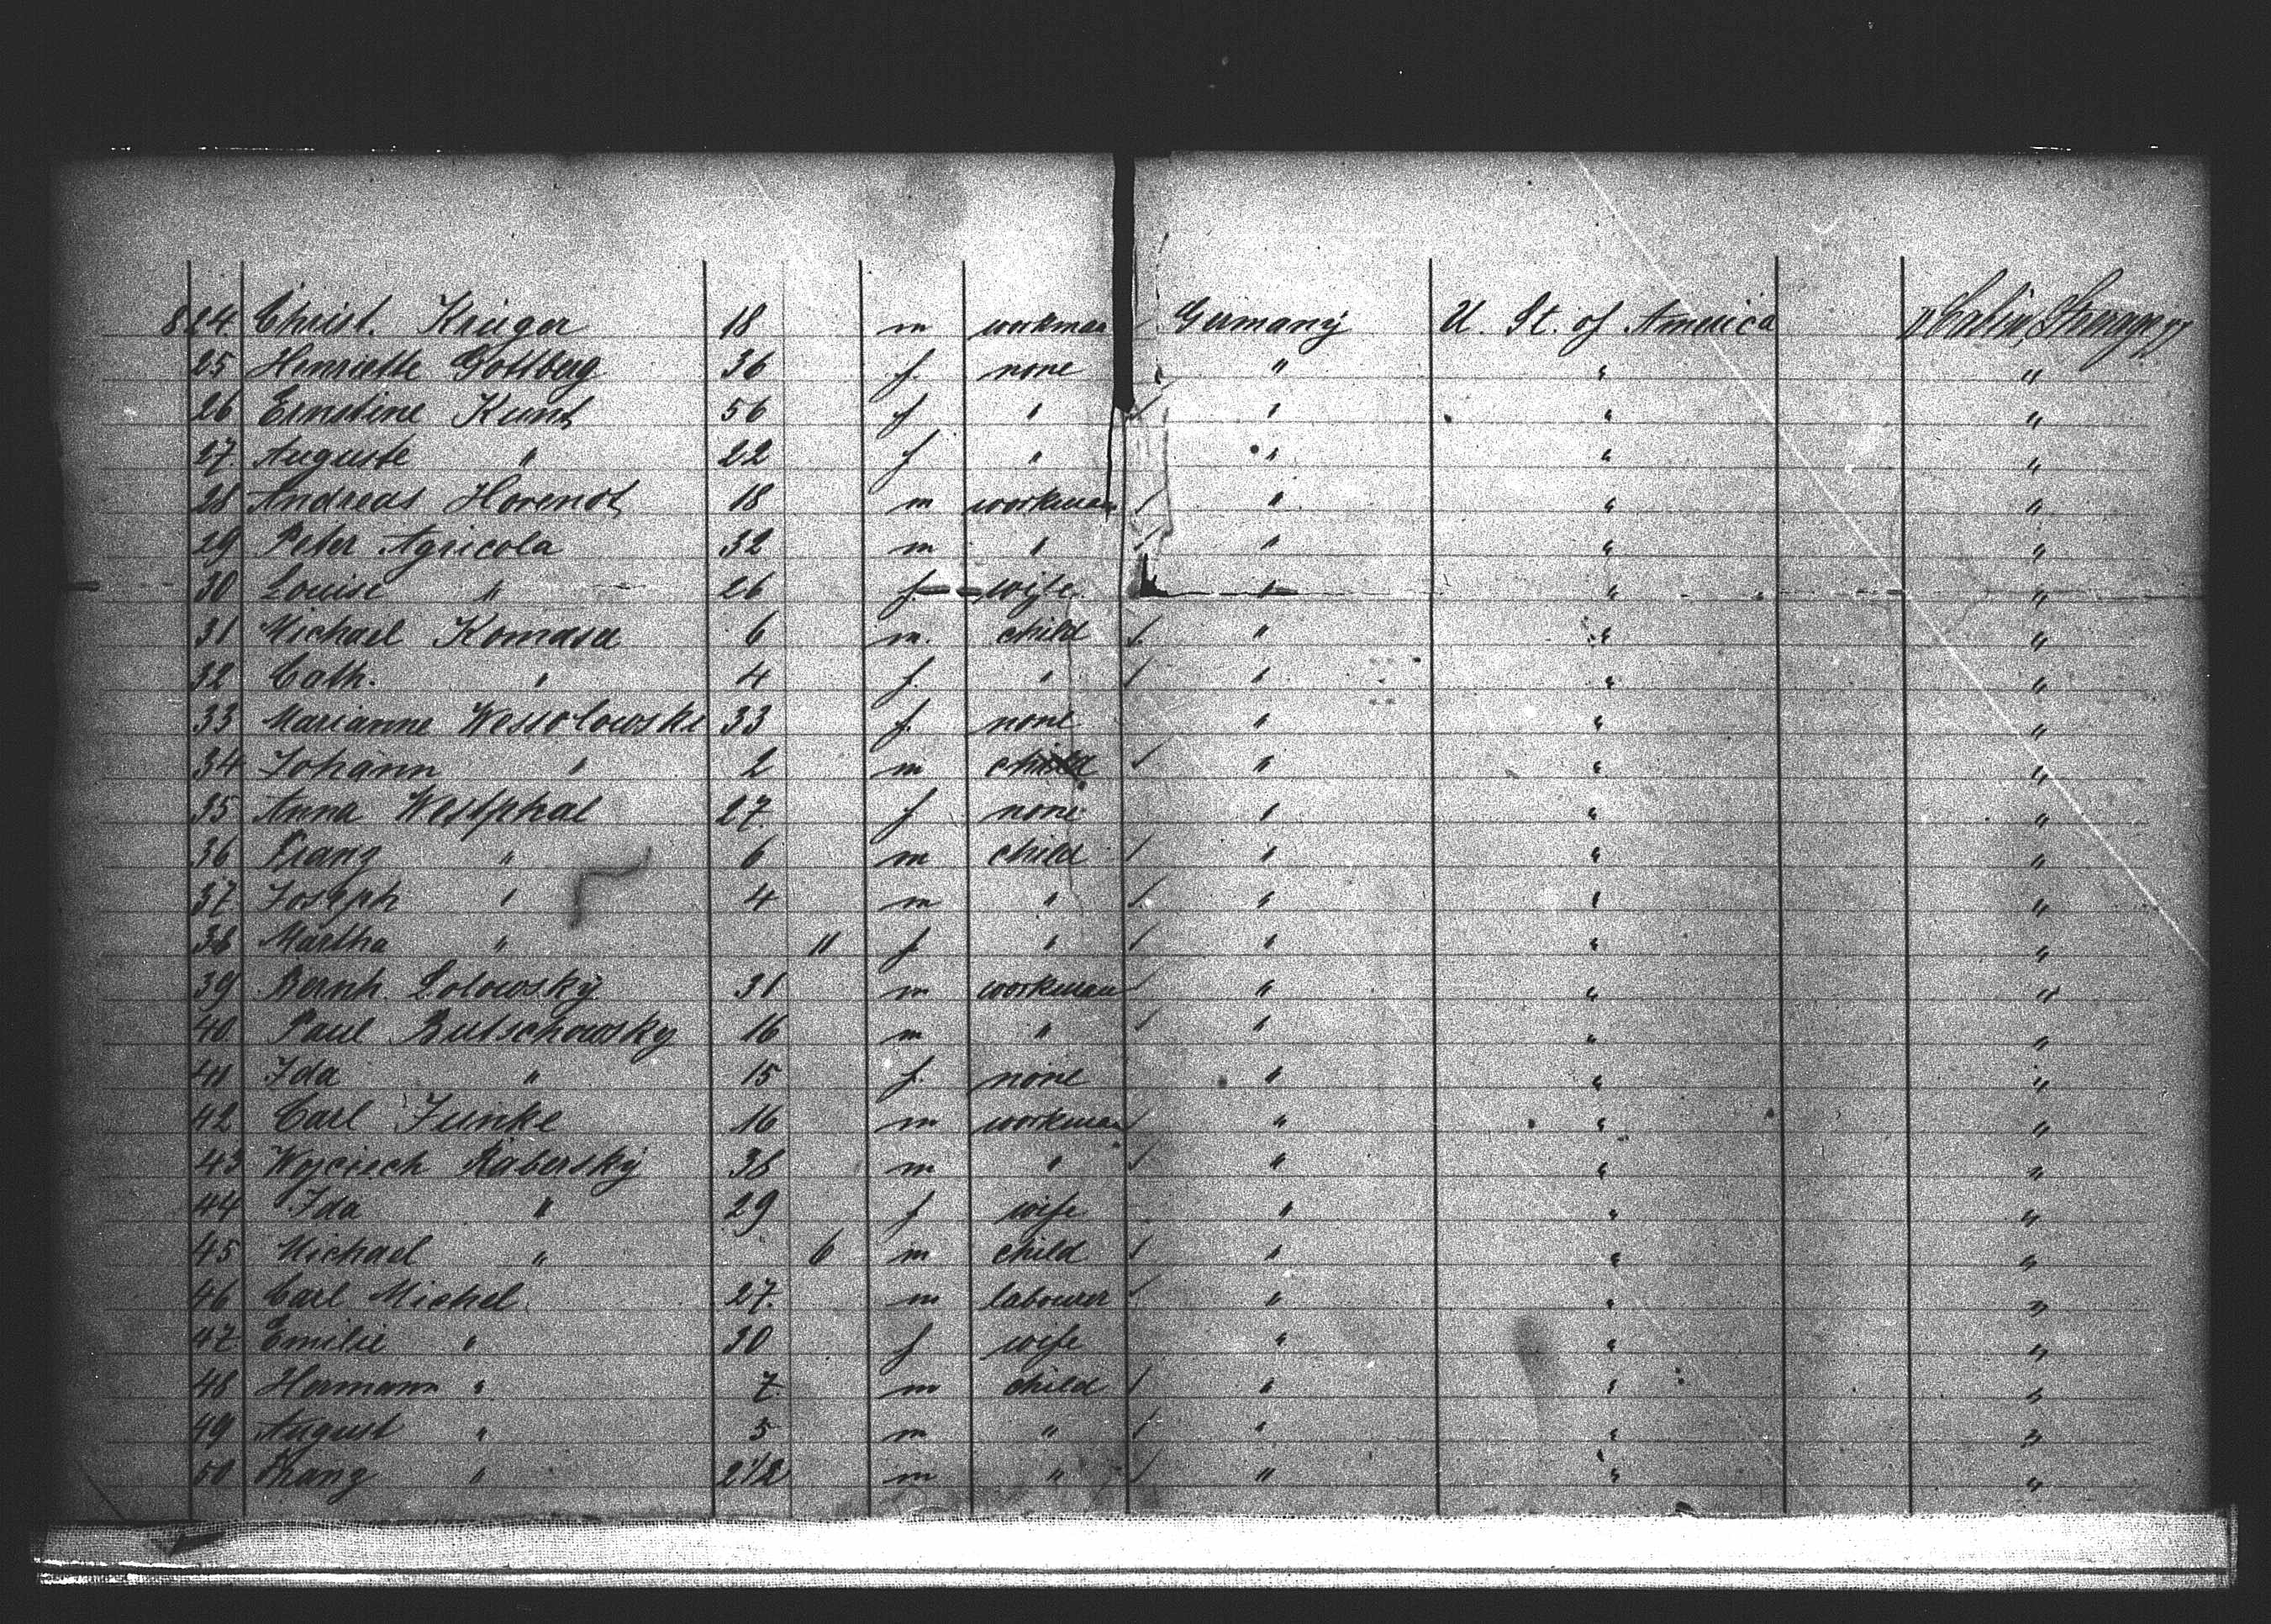 824 Christ. Krüger 18 m workman Germany U. St. of America
25 Henriette Gottberg 36 f. none " " "
26 Ernstine Kunt 56 f " " " "
27. Auguste " 22 f " " " "
28 Andreas 18 m workman / " " "
29 Peter Agricola 32 m " / " " "
30 Louise " 26 f. wife " " "
31 Michael Komasa 6 m. child /. " " "
32 Cath. " 4 f. " / " " "
33 Marianne Wessolowski 33 f. none " " "
34 Johann " 2 m child / " " "
35 Anna Westphal 27. f none " " "
36 Franz " 6 m child / " " "
37. Joseph " 4 m " /. " " "
38 Martha " 11 f " / " " "
39 Bernh. 31 m workman / " " "
40. Paul Butschowsky 16 m " / " " "
41 Ida " 15 f. none " " "
42 Carl Junke 16 m workman / " " "
43 Wojciech 38 m " / " " "
44 Ida " 29 f wife " " "
45 Michael " 6 m child / " " "
46 Carl Michel 27. m labourer / " " "
47 Emilie " 30 f wife " " "
48 Hermann " 7 m child / " " "
49 August " 5 m " / " " "
50 Franz " 2 1/2 m " / " " "